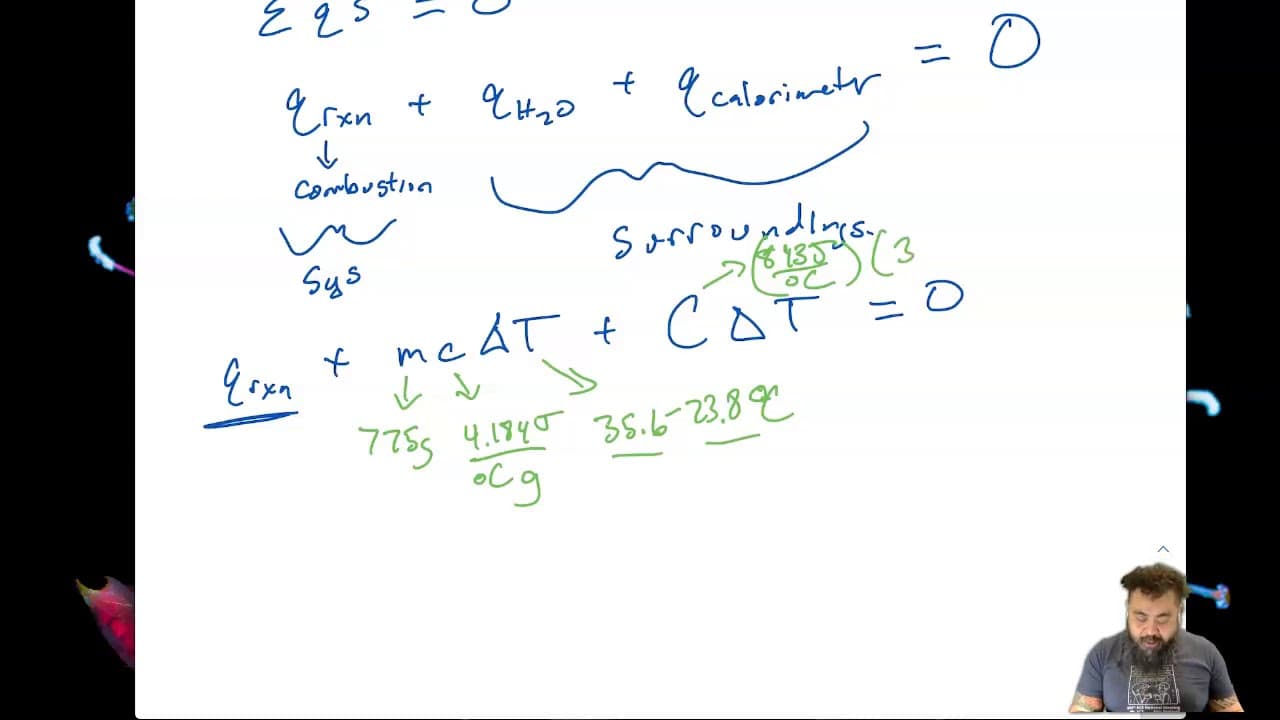 Σ qs = 0
qrxn + qH2O + qcalorimetr = 0
↓
Combustion
Surroundings.
Sys
→ (843J/°C) (3
qrxn + mcΔT + CΔT = 0
775g 4.184J/°Cg 35.6-23.8°C